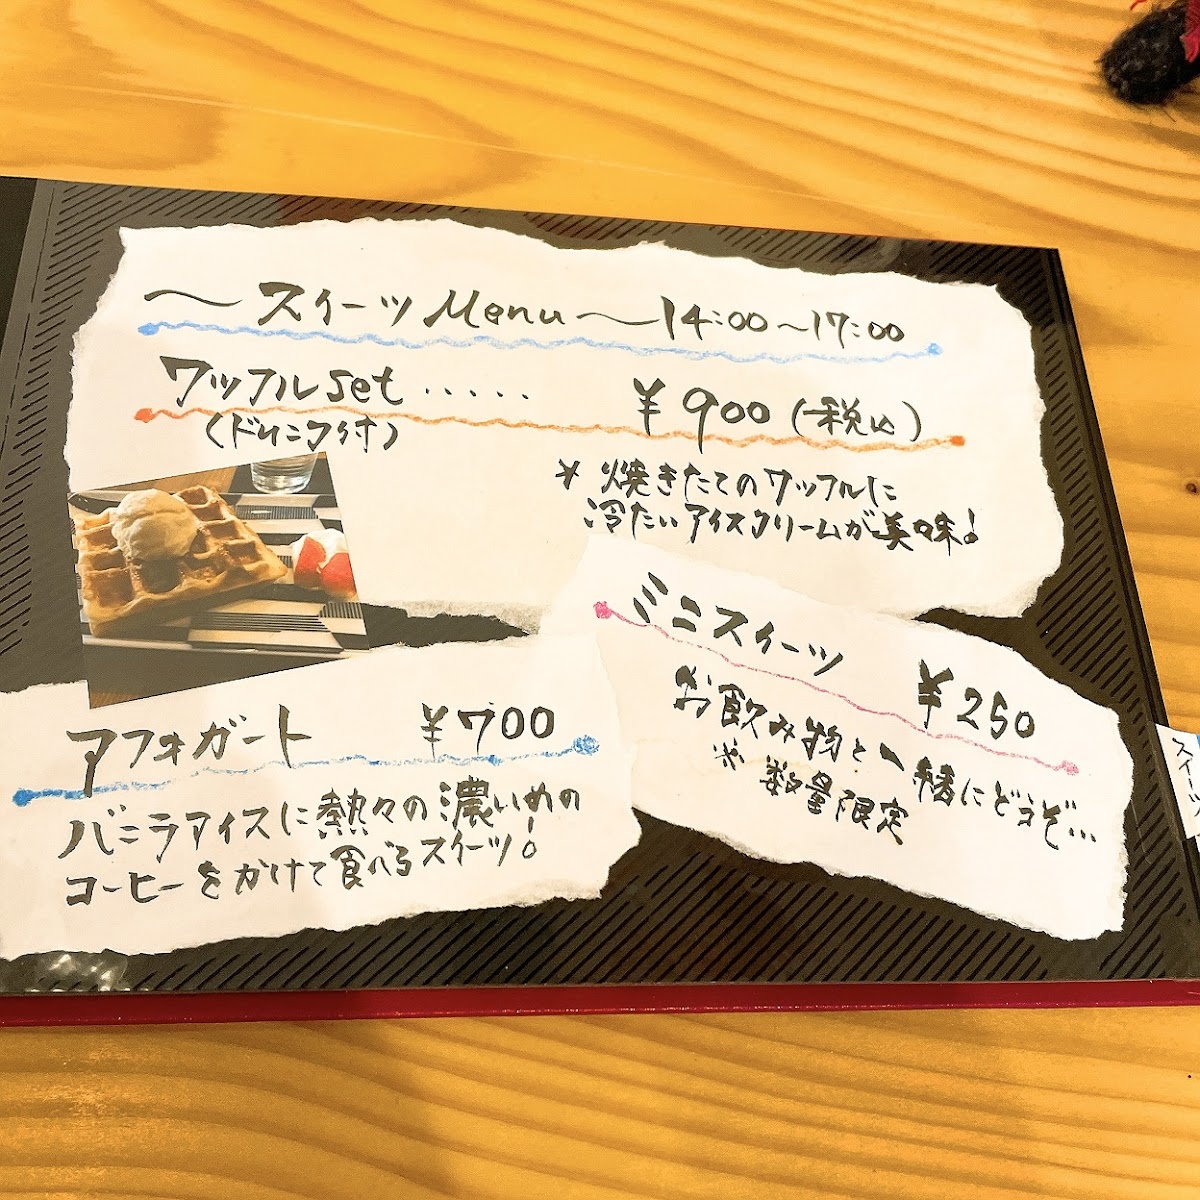 ～スイーツMenu～14:00～17:00
ワッフルset ..... ¥900(税込)
(ドリンク付)
* 焼きたてのワッフルに
冷たいアイスクリームが美味!
ミニスイーツ ¥250
お飲み物と一緒にどうぞ...
※ 数量限定
アフォガート ¥700
バニラアイスに熱々の濃いめの
コーヒーをかけて食べるスイーツ!
スイーツ